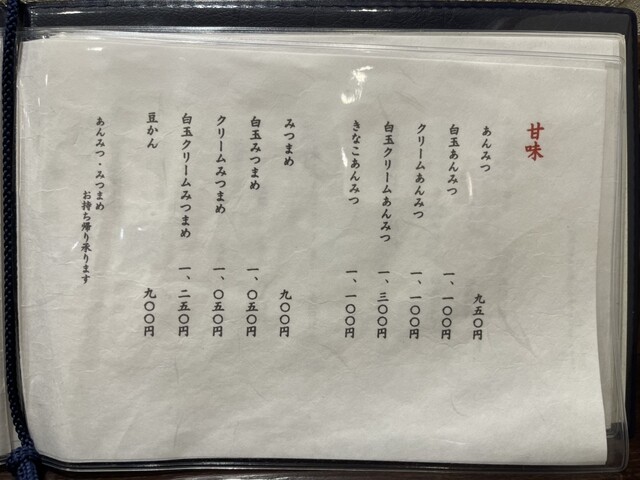 甘味
あんみつ 九五〇円
白玉あんみつ 一、一〇〇円
クリームあんみつ 一、一〇〇円
白玉クリームあんみつ 一、三〇〇円
きなこあんみつ 一、一〇〇円
みつまめ 九〇〇円
白玉みつまめ 一、〇五〇円
クリームみつまめ 一、〇五〇円
白玉クリームみつまめ 一、二五〇円
豆かん 九〇〇円
あんみつ・みつまめ
お持ち帰り承ります